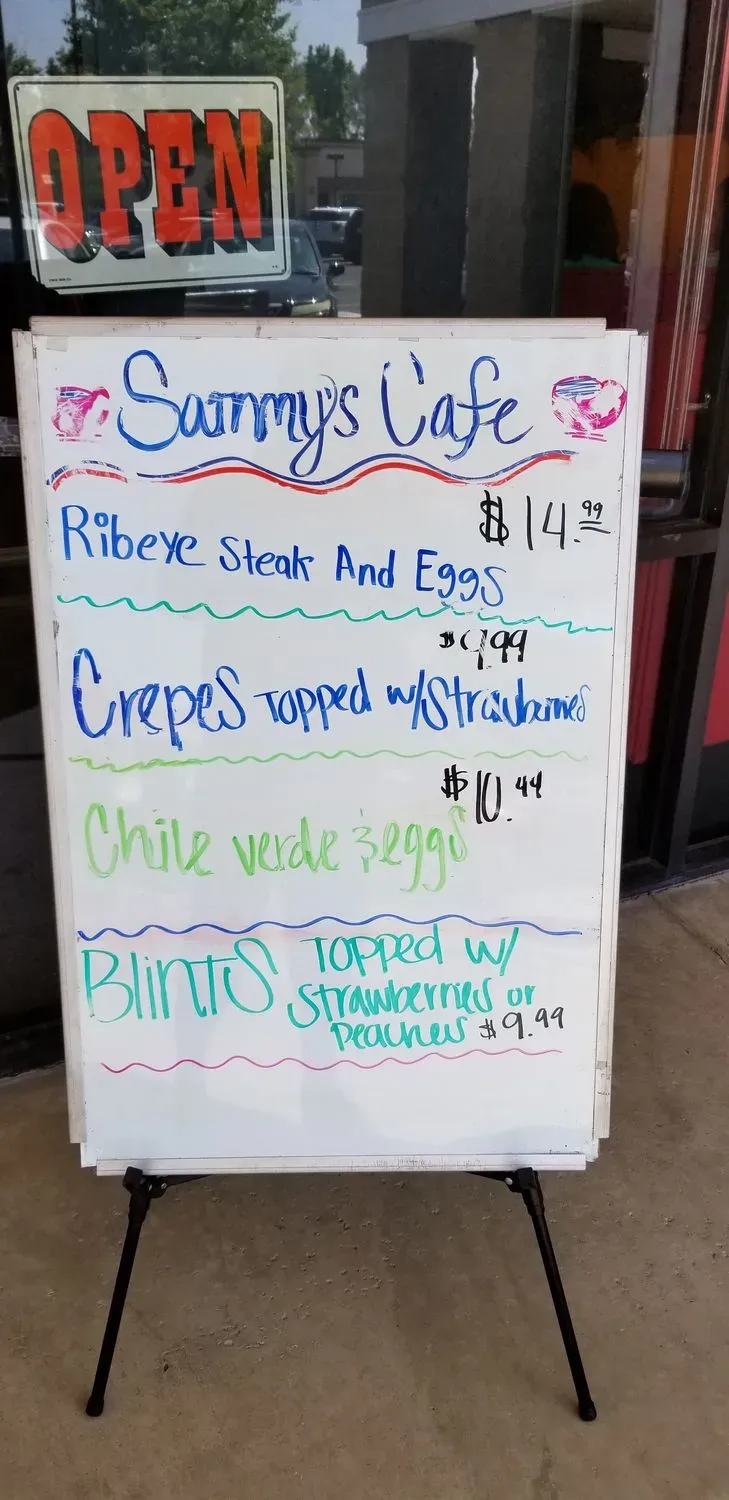 OPEN
Sammy's Cafe
$14.99
Ribeye Steak And Eggs
$9.99
Crepes Topped w/Strawberries
$10.44
Chile verde & eggs
Blints Topped w/
Strawberries or
Peaches $9.99